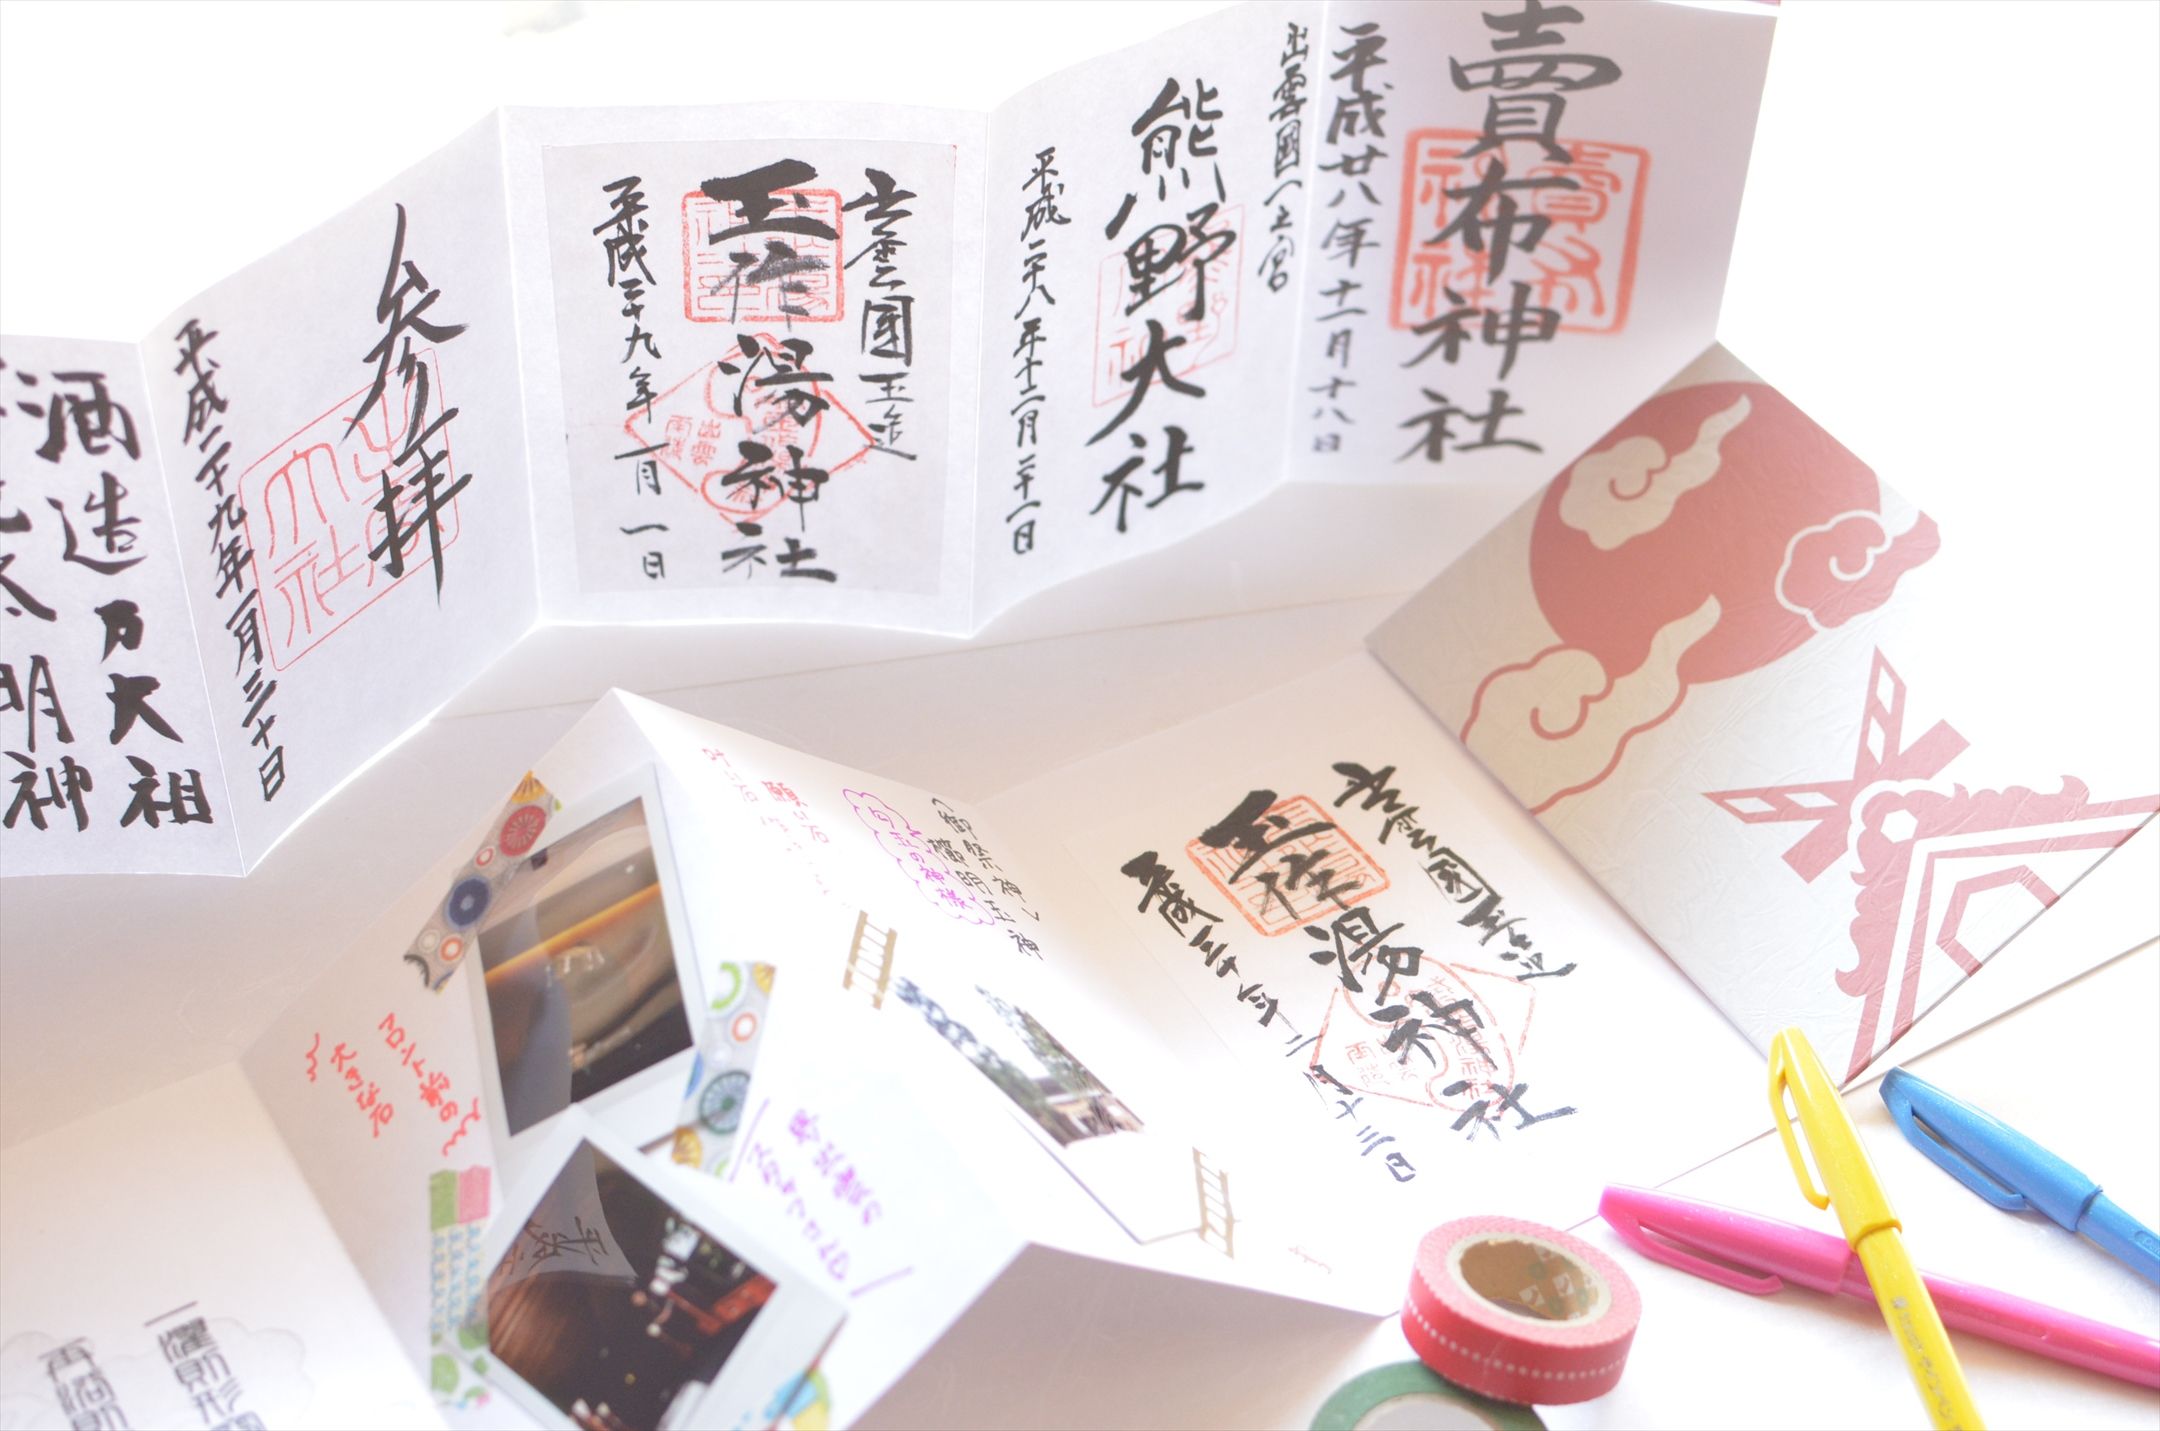 賣布神社
平成廿八年十一月十八日
出雲國一之宮
熊野大社
平成二十八年十二月二十一日
出雲國玉造
玉作湯神社
平成二十九年一月一日
参拝
平成二十九年一月三十日
酒造乃大祖
明神
出雲國玉造
玉作湯神社
平成三十年二月十三日
御祭神
櫛明玉神
勾玉の神様
願い石
叶い石
フロント前の
大きな石
一濯則形
再浴則